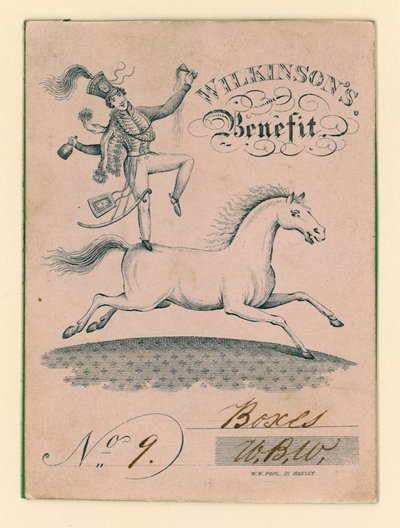 WILKINSON'S
Benefit.
Boxes
No. 9.
W.B.W.
W.W. POPE, Jr. HANLEY